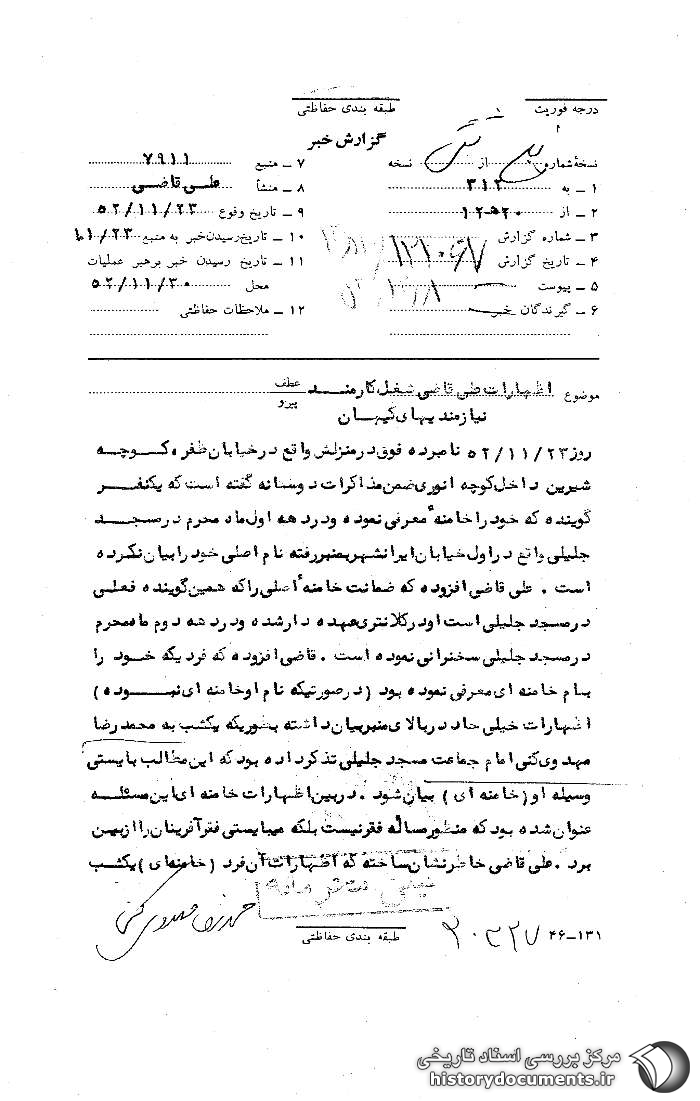 درجه فوریت
طبقه بندی حفاظتی
گزارش خبر
نسخهٔ شماره از نسخه
۱ ـ به ۳۱۲
۲ ـ از ۱۲ﻫ۲۰
۳ ـ شماره گزارش
۴ ـ تاریخ گزارش
۵ ـ پیوست
۶ ـ گیرندگان خبر
۷ ـ منبع ۷۹۱۱
۸ ـ منشأ علی قاضی
۹ ـ تاریخ وقوع ۵۲/۱۱/۲۳
۱۰ ـ تاریخ رسیدن خبر به منبع ۱۱/۲۳
۱۱ ـ تاریخ رسیدن خبر برهبر عملیات
محل ۵۲/۱۱/۳۰
۱۲ ـ ملاحظات حفاظتی
موضوع اظهارات علی قاضی شغل کارمند عطف پیرو
نیازمندیهای کیهان
روز ۵۲/۱۱/۲۳ نامبرده فوق در منزلش واقع در خیابان ظفر، کوچه
شیرین داخل کوچه انوری ضمن مذاکرات دوستانه گفته است که یکنفر
گوینده که خود را خامنه معرفی نموده و در دهه اول ماه محرم در مسجد
جلیلی واقع در اول خیابان ایرانشهر بمنبر رفته نام اصلی خود را بیان نکرده
است . علی قاضی افزوده که ضمانت خامنه اصلی را که همین گوینده فعلی
در مسجد جلیلی است او در کلانتری عهده دار شده و در دهه دوم ماه محرم
در مسجد جلیلی سخنرانی نموده است . قاضی افزوده که فردیکه خود را
بنام خامنه ای معرفی نموده بود ( در صورتیکه نام او خامنه ای نبوده )
اظهارات خیلی حاد در بالای منبر بیان داشته بطوریکه یکشب به محمد رضا
مهدوی کنی امام جماعت مسجد جلیلی تذکر داده بود که این مطالب بایستی
وسیله او ( خامنه ای ) بیان شود . در بین اظهارات خامنه ای این مسئله
عنوان شده بود که منظور مساله فقر نیست بلکه میبایستی فقر آفرینان را از بین
برد . علی قاضی خاطرنشان ساخته که اظهارات آن فرد ( خامنه ای ) یکشب
محمد رضا مهدوی کنی
طبقه بندی حفاظتی
۴۶-۱۳۱
مرکز بررسی اسناد تاریخی
historydocuments.ir